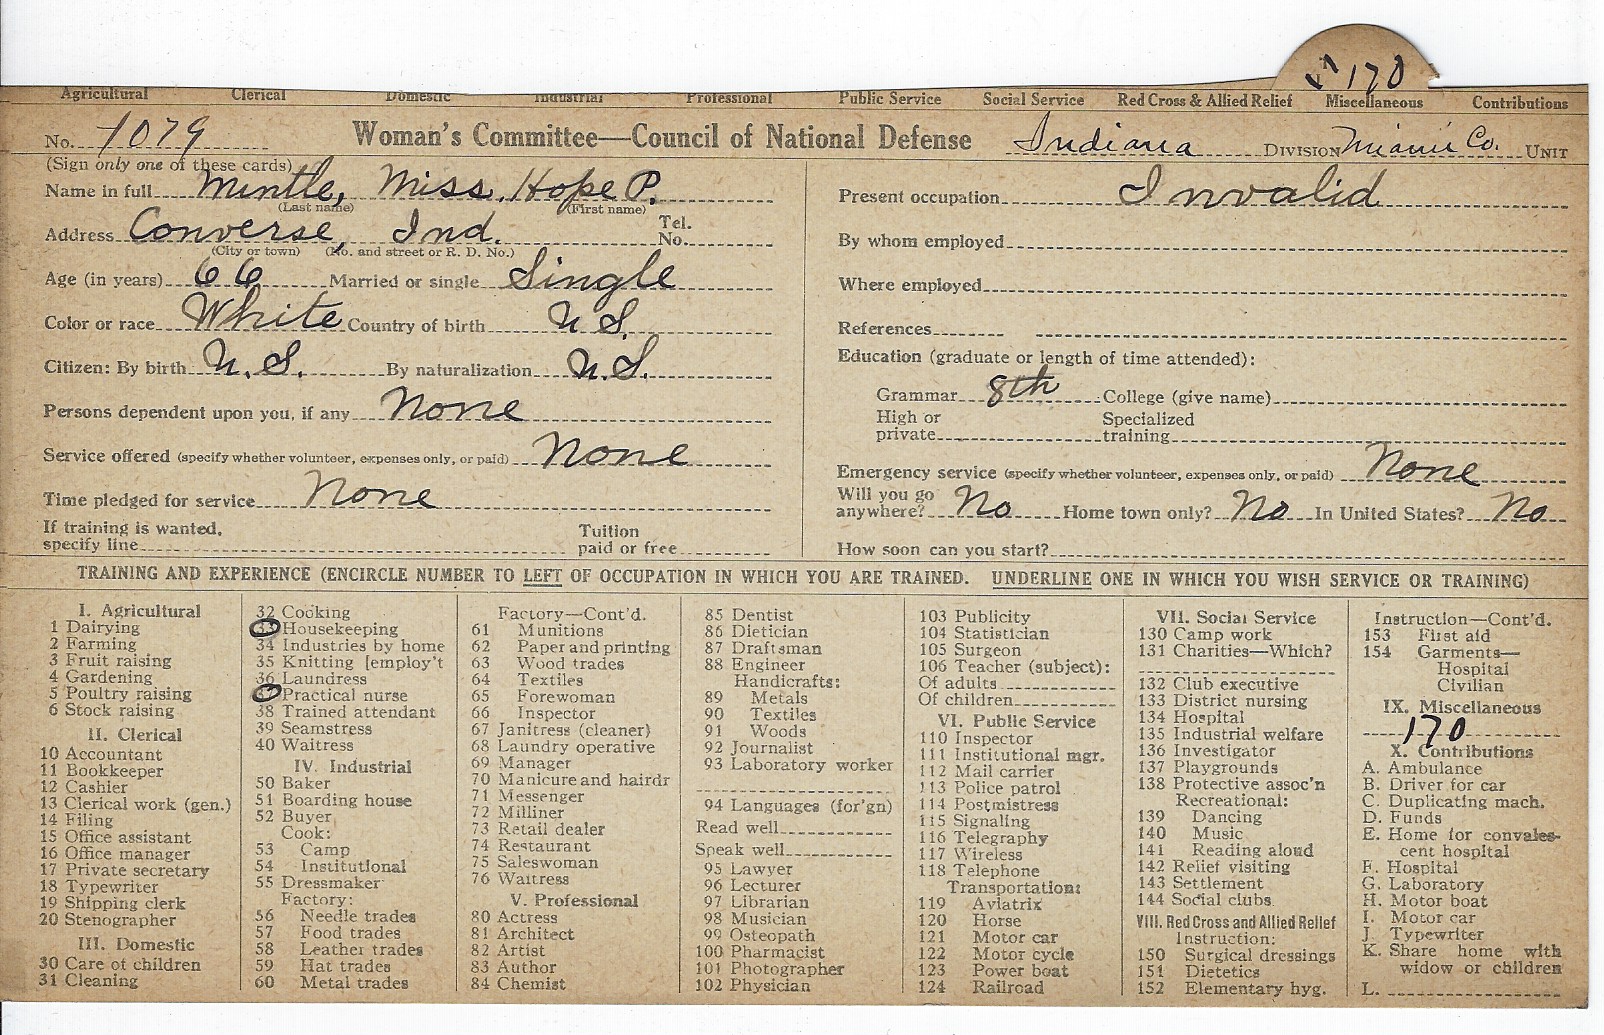 170
Agricultural Clerical Domestic Industrial Professional Public Service Social Service Red Cross & Allied Relief Miscellaneous Contributions
No. 1079 Woman's Committee—Council of National Defense Indiana DIVISION Miami Co. UNIT
(Sign only one of these cards)
Name in full Mintle, Miss. Hope P.
(Last name) (First name)
Address Converse, Ind. Tel. No.
(City or town) (No. and street or R. D. No.)
Age (in years) 66 Married or single Single
Color or race White Country of birth U.S.
Citizen: By birth U.S. By naturalization U.S.
Persons dependent upon you, if any None
Service offered (specify whether volunteer, expenses only, or paid) None
Time pledged for service None
If training is wanted, specify line Tuition paid or free
Present occupation Invalid
By whom employed
Where employed
References
Education (graduate or length of time attended):
Grammar 8th College (give name)
High or private Specialized training
Emergency service (specify whether volunteer, expenses only, or paid) None
Will you go anywhere? No Home town only? No In United States? No
How soon can you start?
TRAINING AND EXPERIENCE (ENCIRCLE NUMBER TO LEFT OF OCCUPATION IN WHICH YOU ARE TRAINED. UNDERLINE ONE IN WHICH YOU WISH SERVICE OR TRAINING)
I. Agricultural
1 Dairying
2 Farming
3 Fruit raising
4 Gardening
5 Poultry raising
6 Stock raising
II. Clerical
10 Accountant
11 Bookkeeper
12 Cashier
13 Clerical work (gen.)
14 Filing
15 Office assistant
16 Office manager
17 Private secretary
18 Typewriter
19 Shipping clerk
20 Stenographer
III. Domestic
30 Care of children
31 Cleaning
32 Cooking
33 Housekeeping
34 Industries by home
35 Knitting [employ't
36 Laundress
37 Practical nurse
38 Trained attendant
39 Seamstress
40 Waitress
IV. Industrial
50 Baker
51 Boarding house
52 Buyer
Cook:
53 Camp
54 Institutional
55 Dressmaker
Factory:
56 Needle trades
57 Food trades
58 Leather trades
59 Hat trades
60 Metal trades
Factory—Cont'd.
61 Munitions
62 Paper and printing
63 Wood trades
64 Textiles
65 Forewoman
66 Inspector
67 Janitress (cleaner)
68 Laundry operative
69 Manager
70 Manicure and hairdr
71 Messenger
72 Milliner
73 Retail dealer
74 Restaurant
75 Saleswoman
76 Waitress
V. Professional
80 Actress
81 Architect
82 Artist
83 Author
84 Chemist
85 Dentist
86 Dietician
87 Draftsman
88 Engineer
Handicrafts:
89 Metals
90 Textiles
91 Woods
92 Journalist
93 Laboratory worker
94 Languages (for'gn)
Read well
Speak well
95 Lawyer
96 Lecturer
97 Librarian
98 Musician
99 Osteopath
100 Pharmacist
101 Photographer
102 Physician
103 Publicity
104 Statistician
105 Surgeon
106 Teacher (subject):
Of adults
Of children
VI. Public Service
110 Inspector
111 Institutional mgr.
112 Mail carrier
113 Police patrol
114 Postmistress
115 Signaling
116 Telegraphy
117 Wireless
118 Telephone
Transportation:
119 Aviatrix
120 Horse
121 Motor car
122 Motor cycle
123 Power boat
124 Railroad
VII. Social Service
130 Camp work
131 Charities—Which?
132 Club executive
133 District nursing
134 Hospital
135 Industrial welfare
136 Investigator
137 Playgrounds
138 Protective assoc'n
Recreational:
139 Dancing
140 Music
141 Reading aloud
142 Relief visiting
143 Settlement
144 Social clubs
VIII. Red Cross and Allied Relief
Instruction:
150 Surgical dressings
151 Dietetics
152 Elementary hyg.
Instruction—Cont'd.
153 First aid
154 Garments—
Hospital
Civilian
IX. Miscellaneous
170
X. Contributions
A. Ambulance
B. Driver for car
C. Duplicating mach.
D. Funds
E. Home for convales-
cent hospital
F. Hospital
G. Laboratory
H. Motor boat
I. Motor car
J. Typewriter
K. Share home with
widow or children
L.